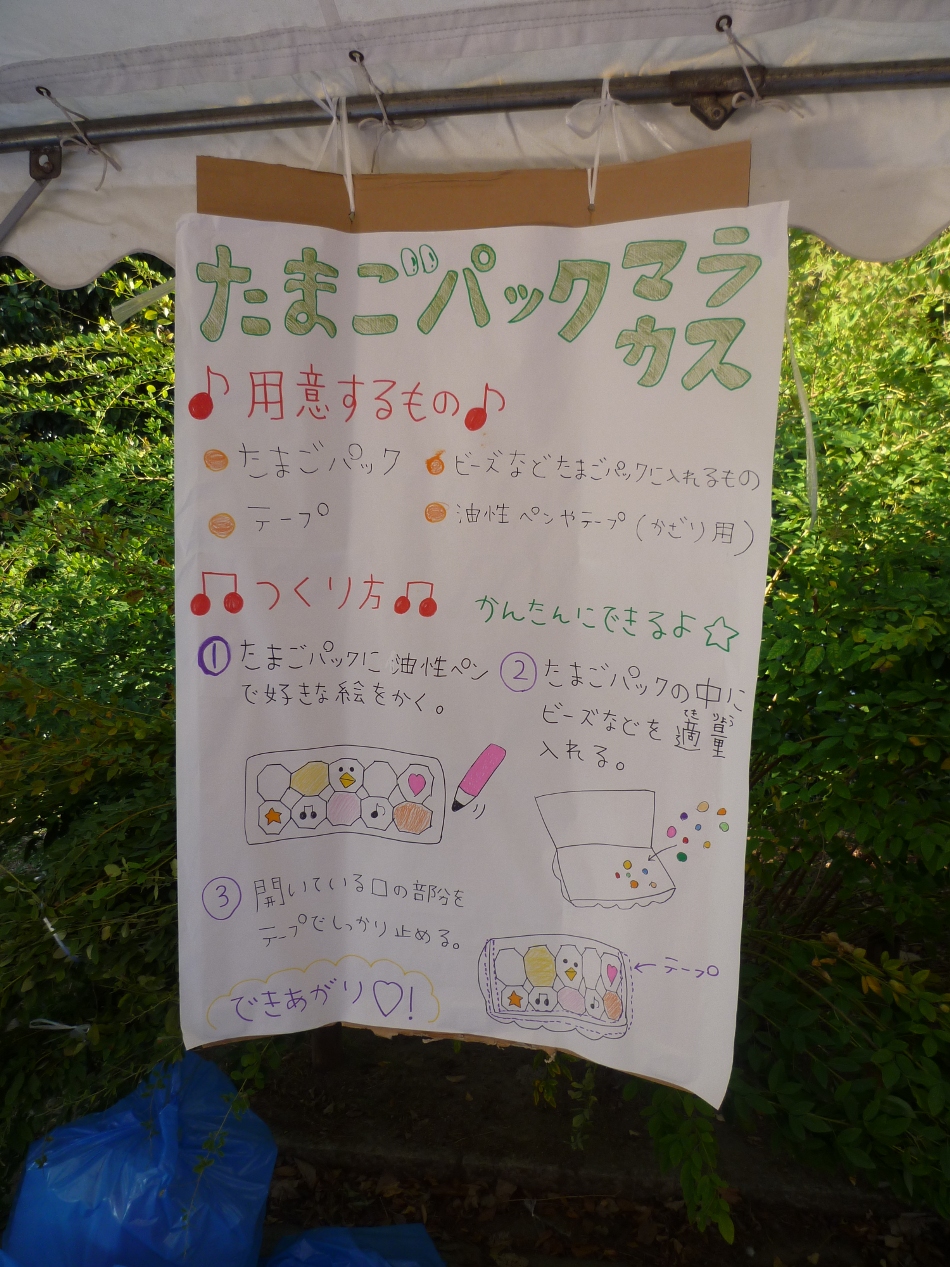 たまごパックマラカス
♪用意するもの♪
たまごパック
ビーズなどたまごパックに入れるもの
テープ
油性ペンやテープ(かざり用)
♫つくり方♫
かんたんにできるよ☆
① たまごパックに油性ペン
で好きな絵をかく。
② たまごパックの中に
ビーズなどを適量
てき りょう
入れる。
③ 開いている口の部分を
テープでしっかり止める。
←テープ
できあがり♡!